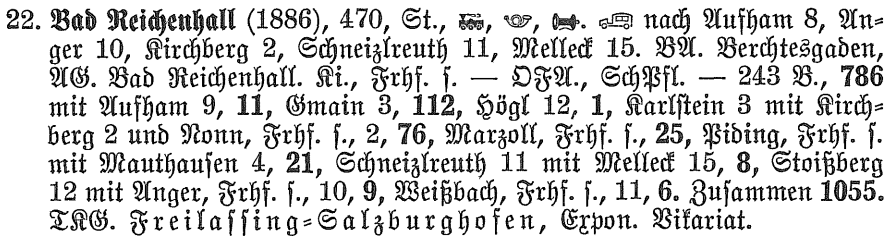 22. Bad Reichenhall (1886), 470, St., 🚂, 📯, ☎. 🚌 nach Aufham 8, An-
ger 10, Kirchberg 2, Schneizlreuth 11, Melleck 15. BA. Berchtesgaden,
AG. Bad Reichenhall. Ki., Frhf. s. — OFA., SchPfl. — 243 B., 786
mit Aufham 9, 11, Gmain 3, 112, Högl 12, 1, Karlstein 3 mit Kirch-
berg 2 und Nonn, Frhf. s., 2, 76, Marzoll, Frhf. s., 25, Piding, Frhf. s.
mit Mauthausen 4, 21, Schneizlreuth 11 mit Melleck 15, 8, Stoißberg
12 mit Anger, Frhf. s., 10, 9, Weißbach, Frhf. s., 11, 6. Zusammen 1055.
TKG. Freilassing-Salzburghofen, Expon. Vikariat.